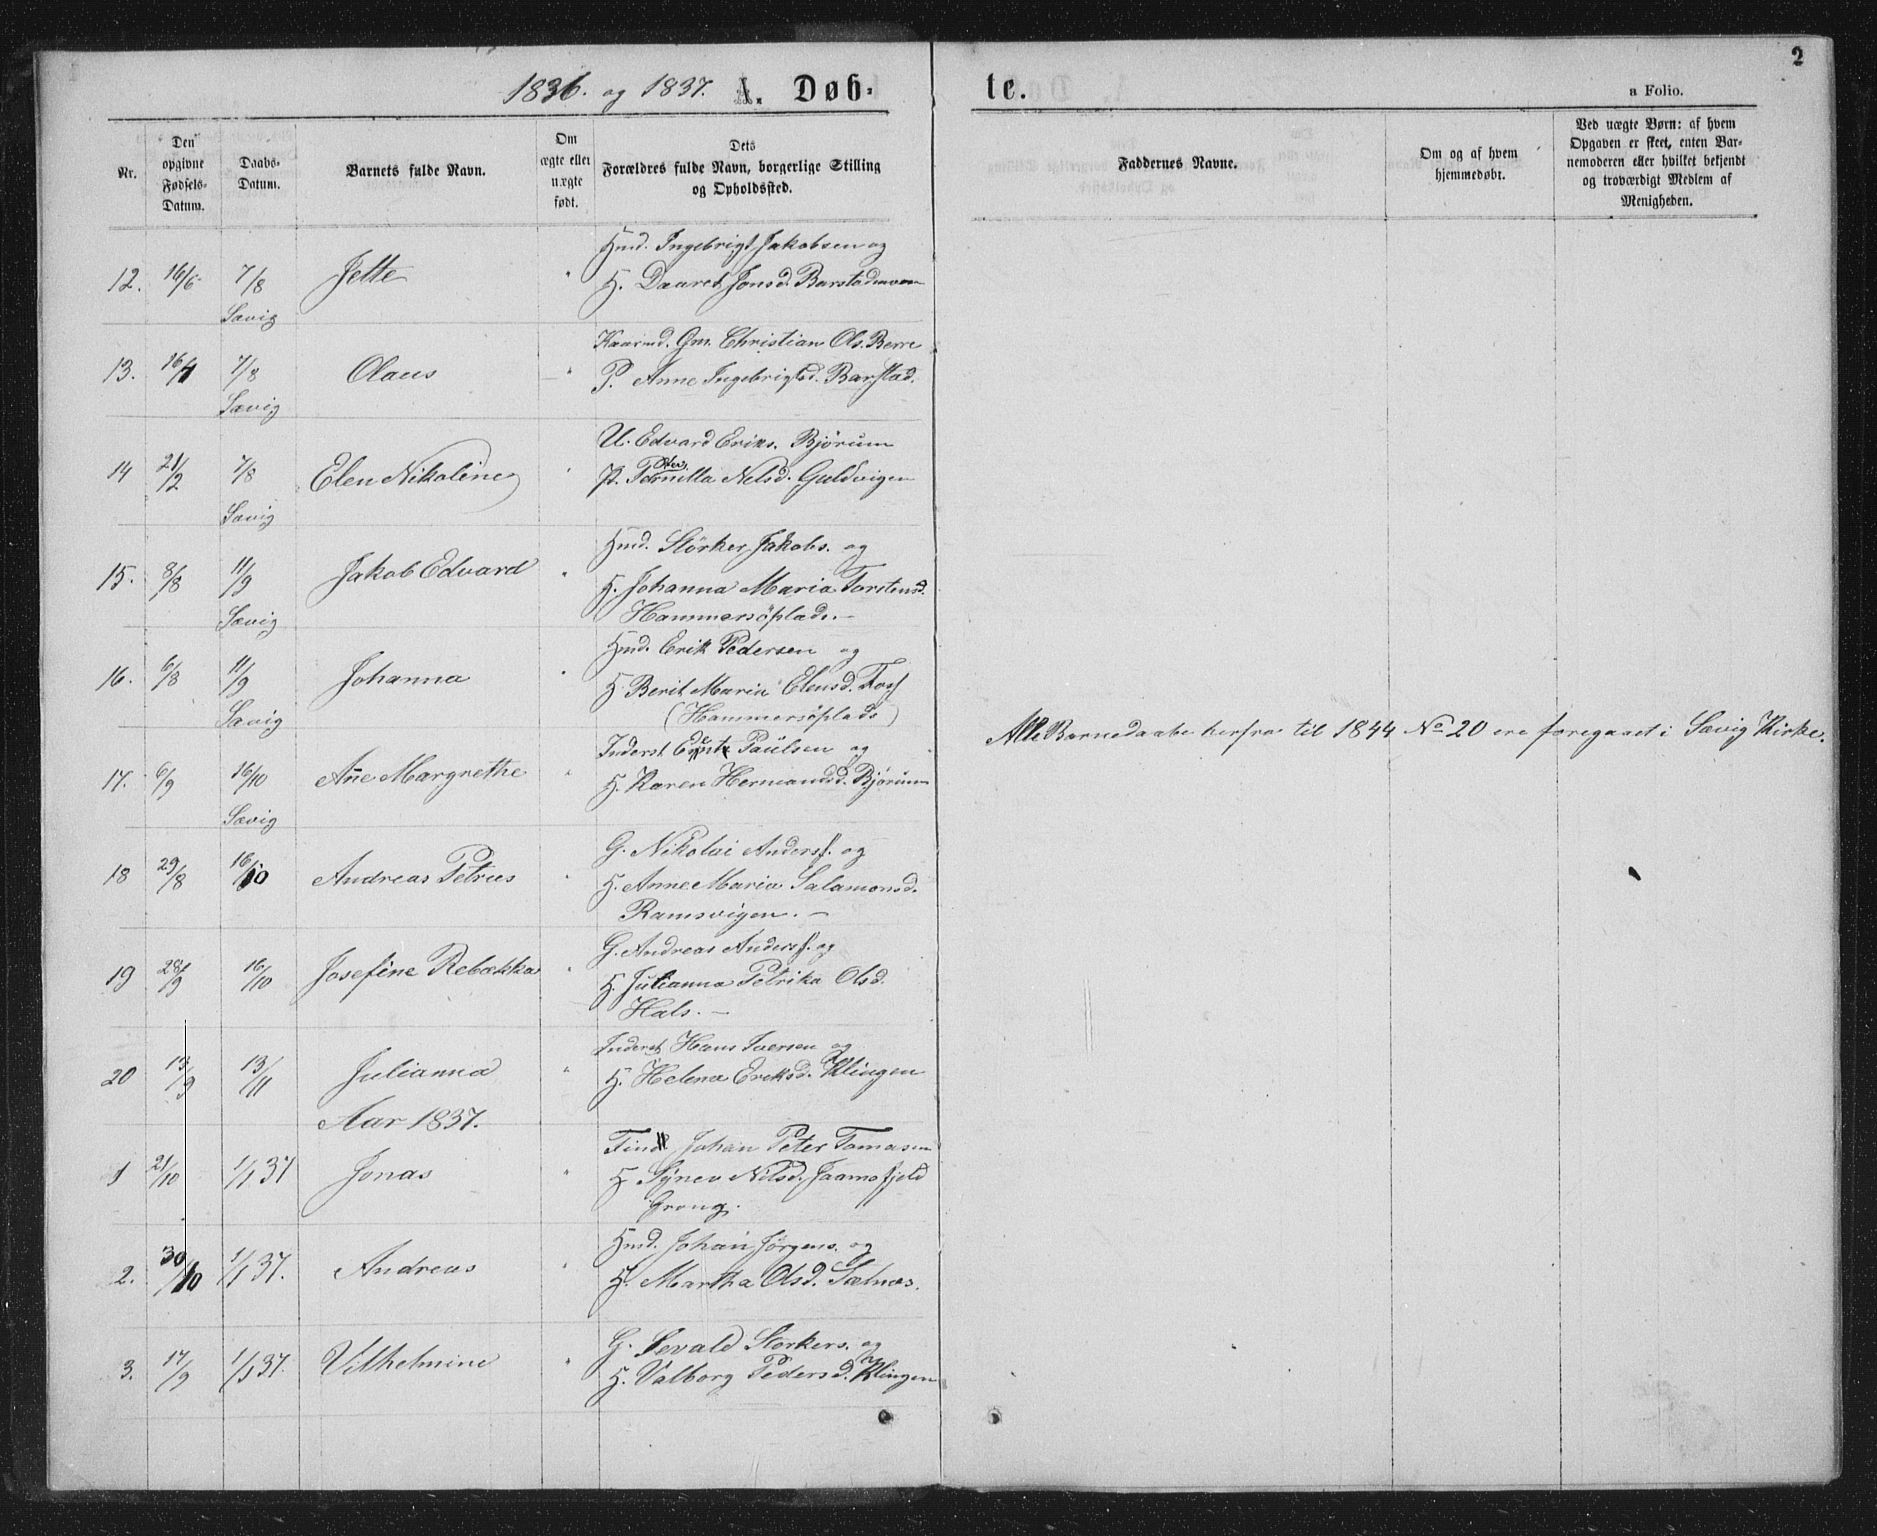 1836. og 1837. A. Døb-
te.
2
a Folio.
Nr.
Den opgivne Fødsels-Datum.
Daabs-Datum.
Barnets fulde Navn.
Om ægte eller uægte født.
Dets
Forældres fulde Navn, borgerlige Stilling
og Opholdssted.
Faddernes Navne.
Om og af hvem
hjemmedøbt.
Ved uægte Børn: af hvem
Opgaven er skeet, enten Bar-
nemoderen eller hvilket bekjendt
og troværdigt Medlem af
Menigheden.
Hmd. Ingebrigt Jakobsen og
12. 16/6 7/8 Jette " H. Daaret Jonsd. Barstad
Sævig
Gm. Christian Ols. Berre
13. 16/4 7/8 Olaus " P. Anne Ingebrigtsd. Barstad.
Sævig
U. Edvard Eriks. Bjørum
14 21/2 7/8 Elen Nikoline " P. Nelsd. Guldvigen
Sævig
Hmd. Störker Jakobs. og
15. 8/8 11/9 Jakob Edvard " H. Johanna Maria Torstensd.
Sævig Hammersöplads. –
Hmd. Erik Pedersen og
16. 6/8 11/9 Johanna " H Berit Maria Elensd. Foss
Sævig (Hammersöplads)
Inderst Paulsen og
17. 6/9 16/10 Añe Margrethe " H. Karen Hermandsd. Bjørum
Sævig
G. Nikolai Anderss. og
18 29/8 16/10 Andreas Petrus " H. Anne Maria Salamonsd.
Ramsvigen. –
G. Andreas Anderss. og
19 28/9 16/10 Josefine Rebækka " H. Julianna Petrika Olsd.
Hals. –
Inderst Hans Iversen og
20 13/9 13/11 Julianna " H. Helena Eriksd. Klingen
Aar 1837.
Johan Peter Tomasen
1 21/10 1/1 37 Jonas " H Synev Nilsd. Jaamsfjeld
Grong.
Hmd. Johan Jörgens. og
2. 30/10 1/1 37. Andreas " H. Martha Olsd. Sælnæs.
G. Sevald Storkers. og
3. 17/9 1/1 37. Vilhelmine " H. Valborg Pedersd. Klingen
Alle Barnedaabe herfra til 1844 No 20 ere foregaaet i Sævig Kirke.